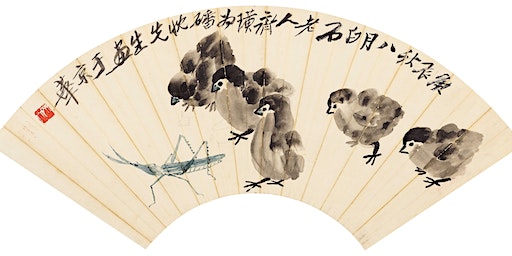 庚辰秋八月白石老人齊璜為磻先生畫于京華